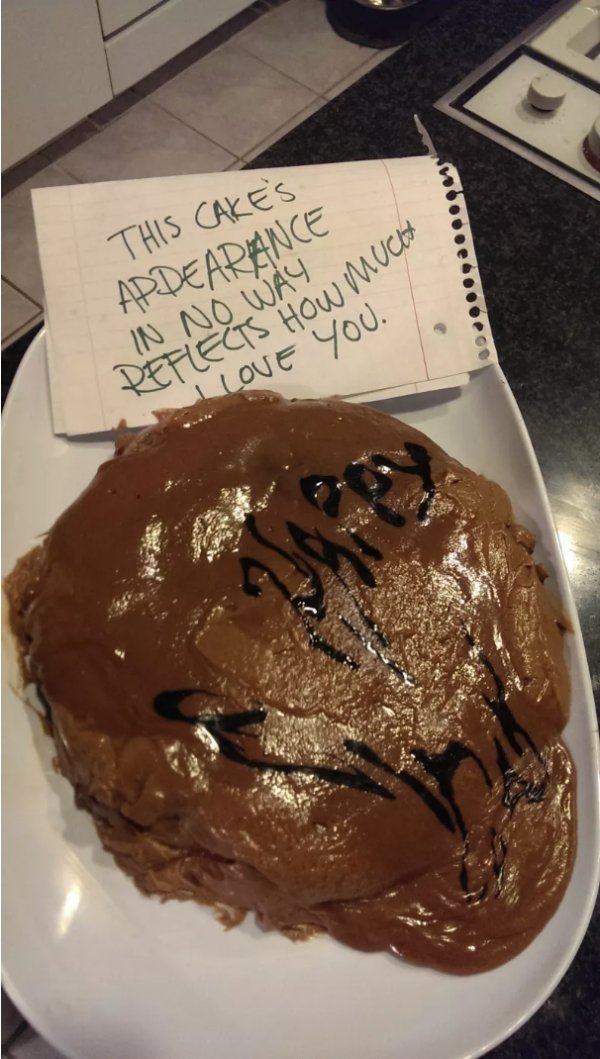 THIS CAKE'S
APPEARANCE
IN NO WAY
REFLECTS HOW MUCH
I LOVE YOU.
Happy